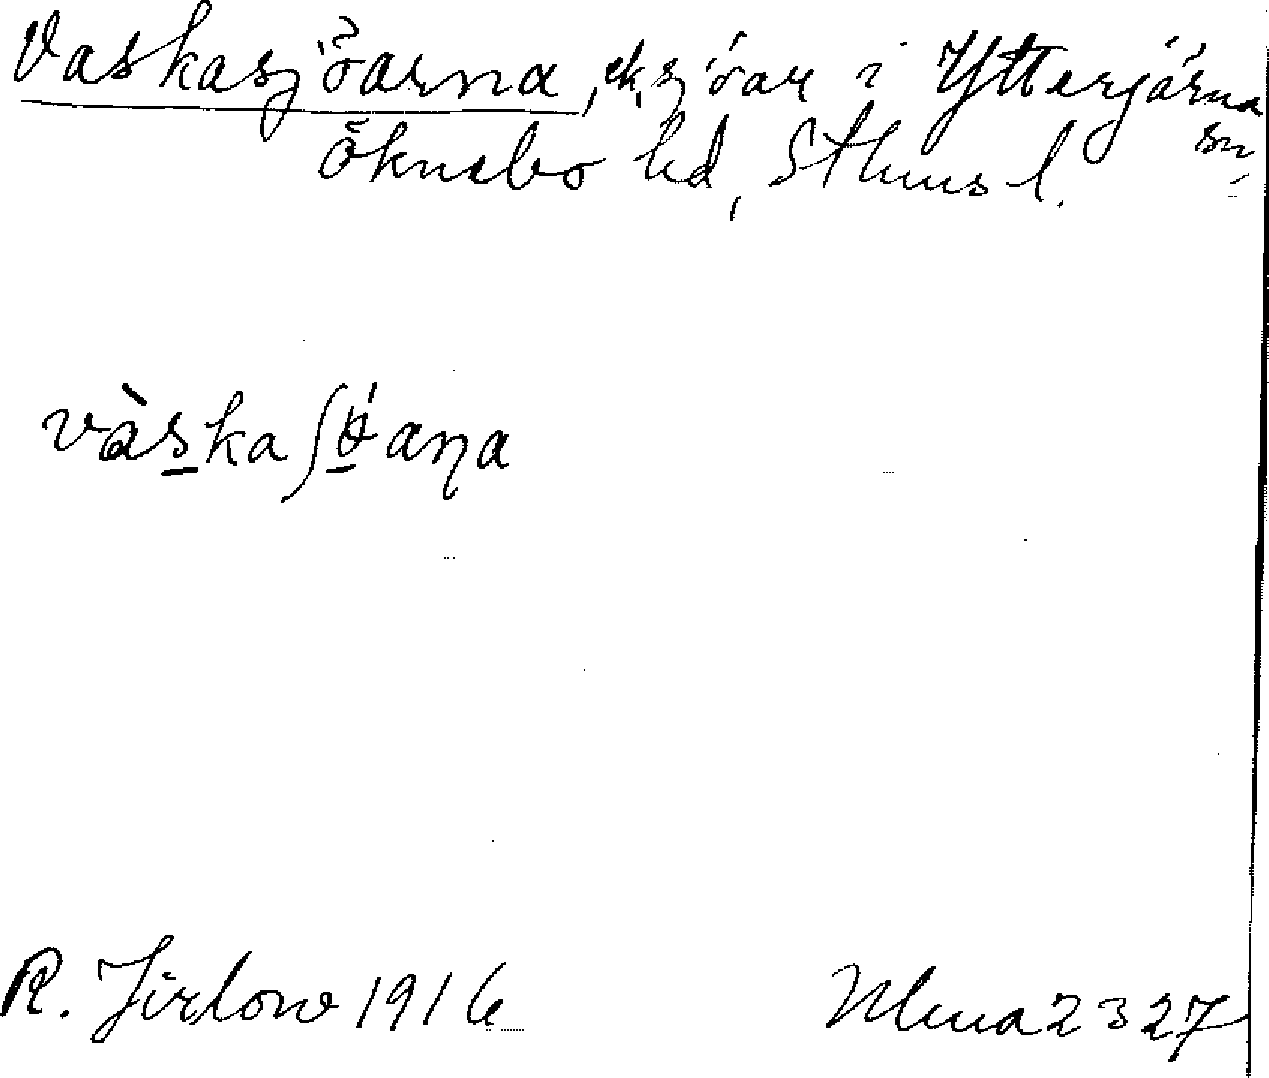 Vaskasjöarna, ek, sjöar i Ytterjärna sn,
Öknebo hd, Sthms l.
vàs̲kaʃɵ̲́aɳa
R. Jirlow 1916